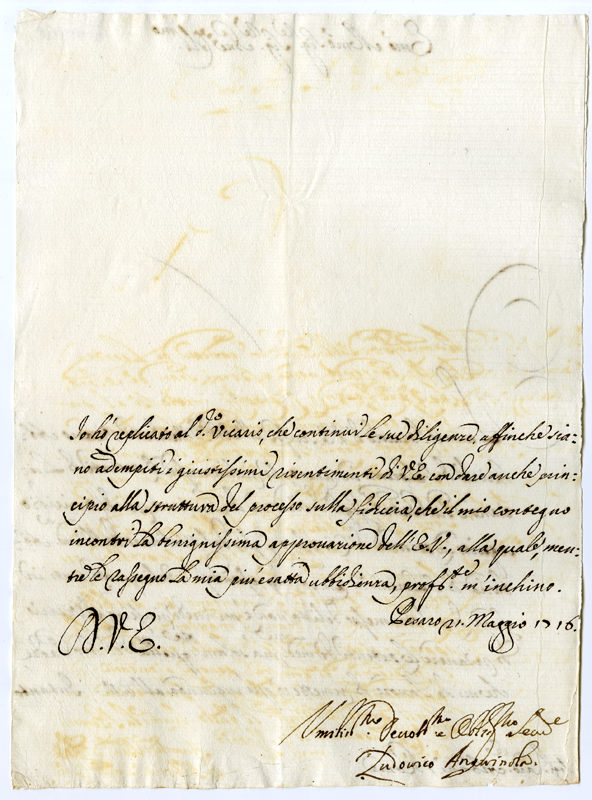 Io hò replicato al d.º Vicario, che continui le sue diligenze, affinche sia-
no adempiti i giustissimi risentimenti di V.E. con dare anche prin-
cipio alla struttura del processo sulla fiducia, che il mio contegno
incontri la benignissima approvazione dell' E.V., alla quale, men-
tre le rassegno la mia più esatta ubbidienza, prof.te m' inchino.
Pesaro 21. Maggio 1716.
D. V. E.
Umiliss.mo Devotiss.mo e Oblig.mo
Ludovico